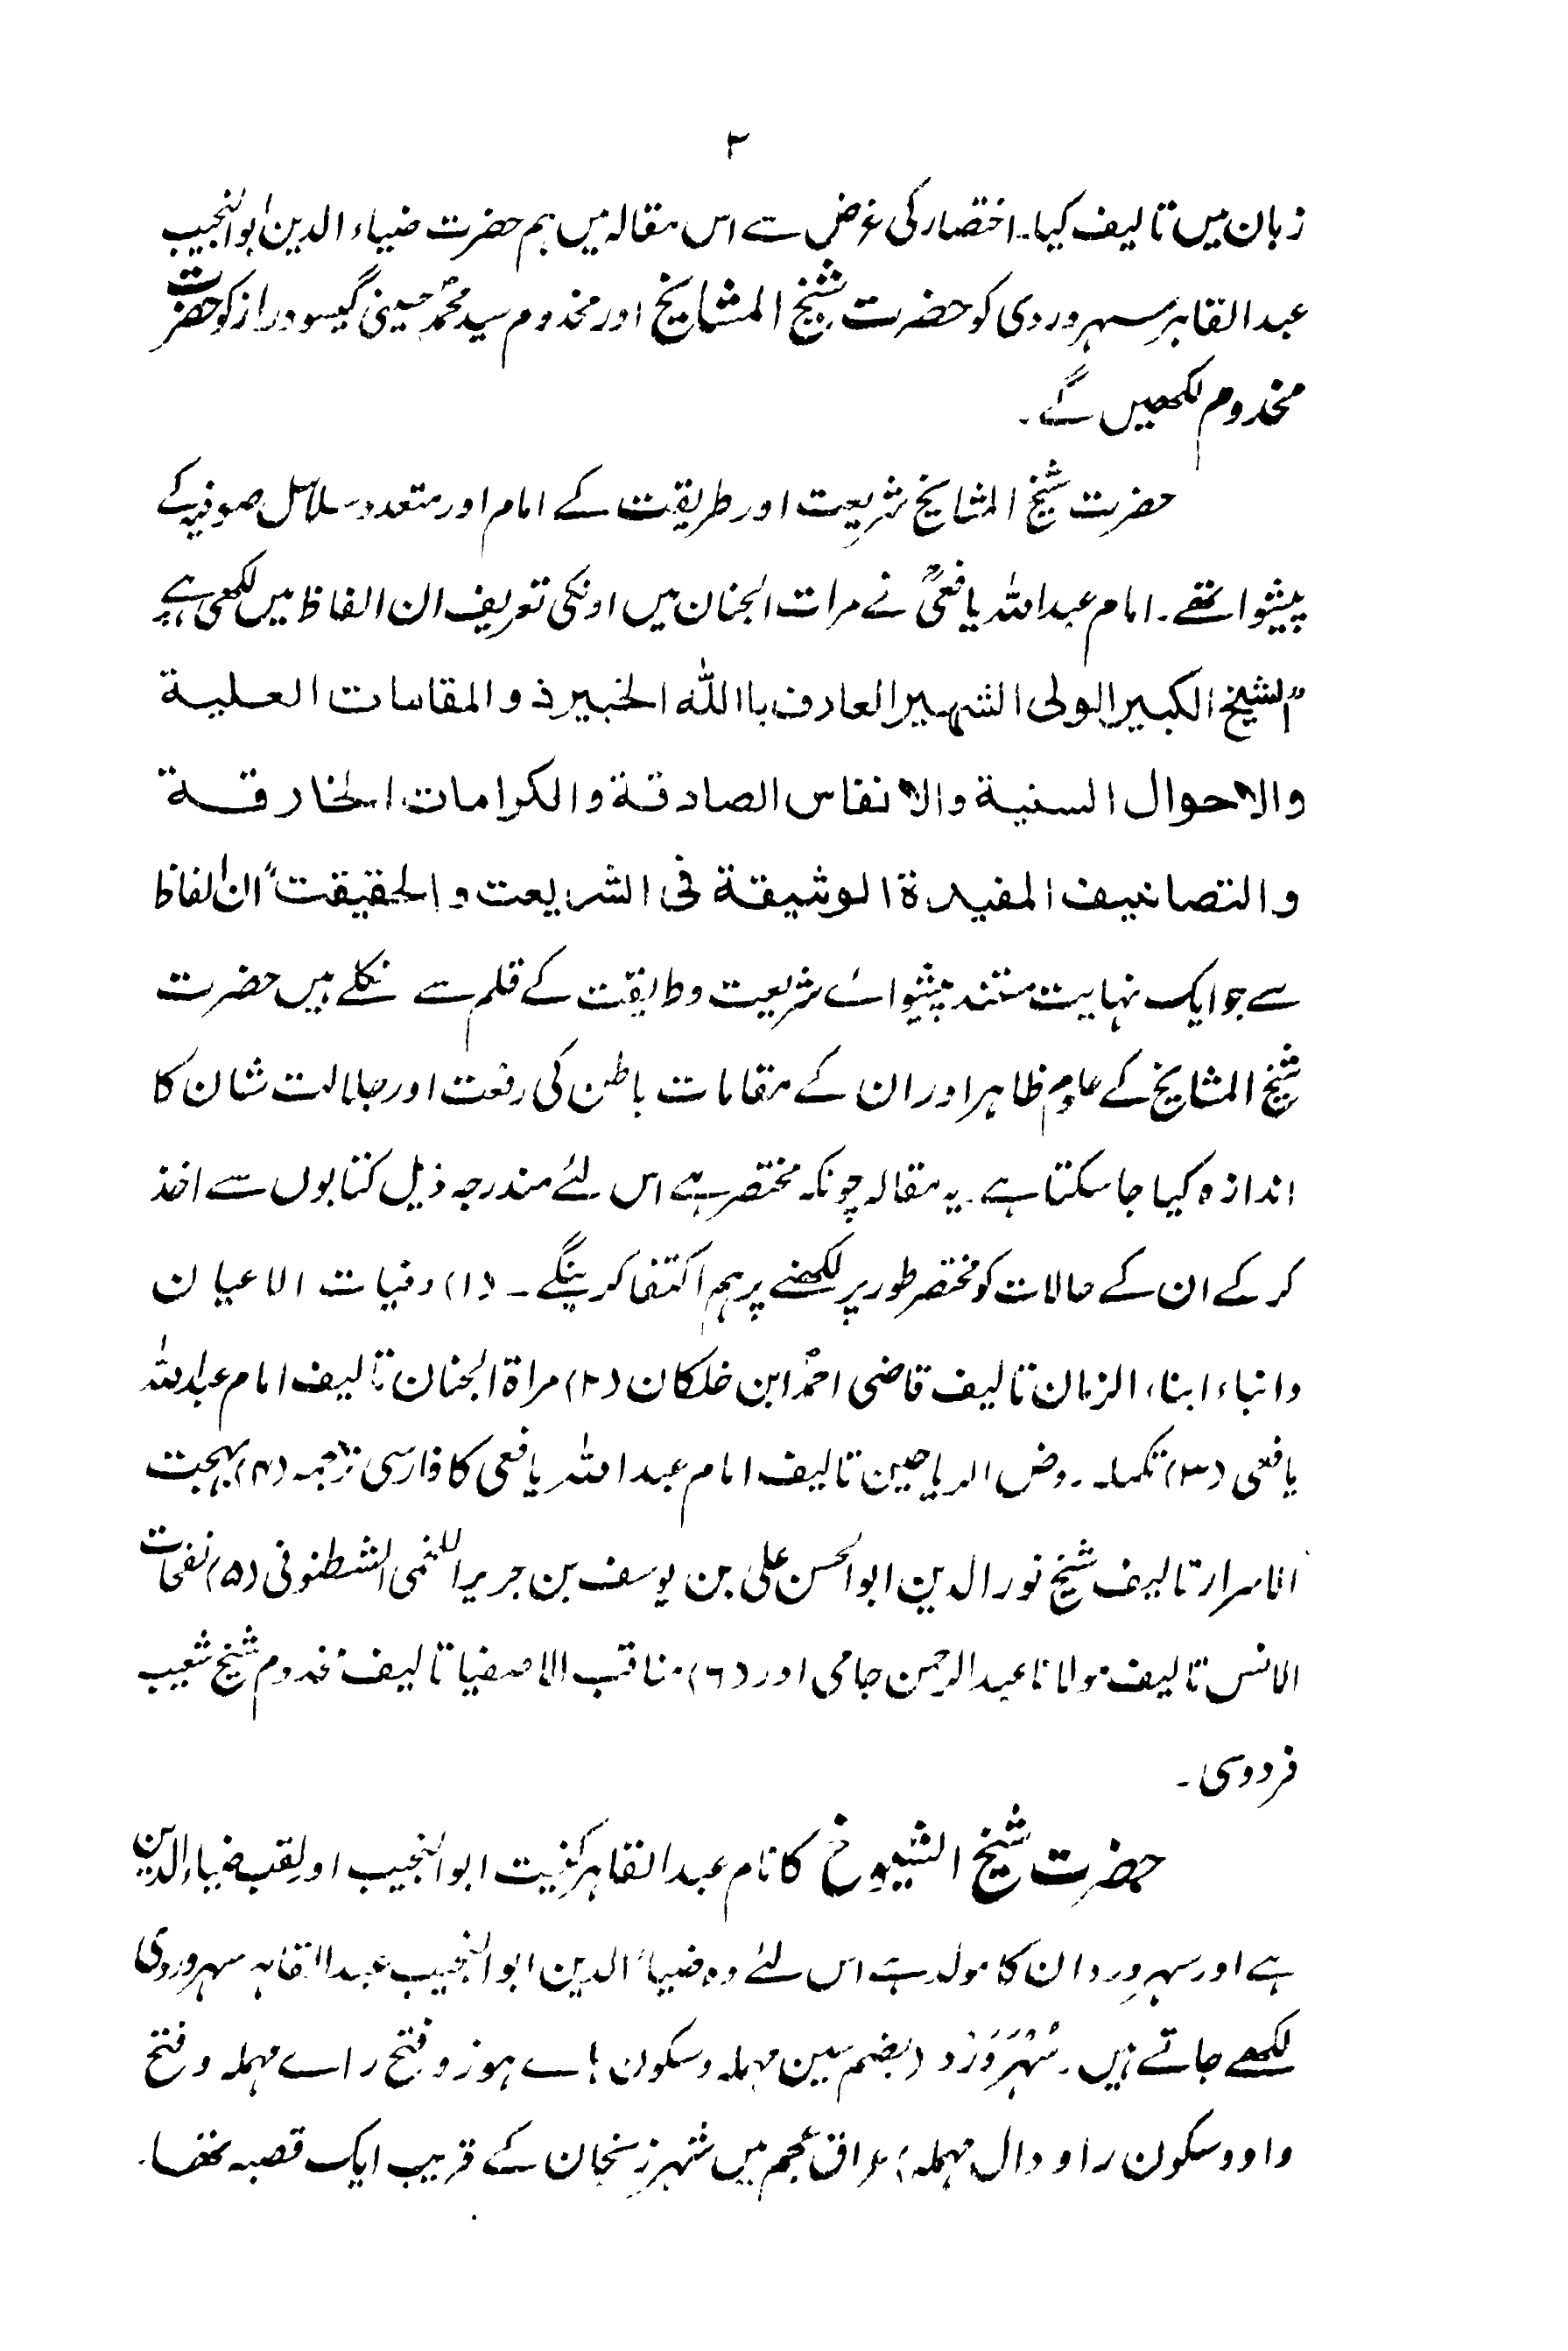 ۲
زبان میں تالیف کیا۔ اختصار کی غرض سے اس مقالہ میں ہم حضرت ضیاء الدین ابو النجیب
عبد القاہر سہروردی کو حضرت شیخ المشایخ اور مخدوم سید محمد حسینی گیسو دراز کو حضرت
مخدوم لکھیں گے۔
حضرت شیخ المشایخ شریعت اور طریقت کے امام اور متعدد سلاسل صوفیہ کے
پیشوا تھے۔ امام عبد اللہ یافعیؒ نے مرات الجنان میں اونکی تعریف ان الفاظ میں لکھی ہے
"الشیخ الکبیر الولی الشہیر العارف باللہ الخبیر ذو المقامات العلیة
والاحوال السنیة والانفاس الصادقة والکرامات الخارقة
والتصانیف المفیدة الوشیقة فی الشریعت والحقیقت" ان الفاظ
سے جو ایک نہایت مستند پیشوائے شریعت وطریقت کے قلم سے نکلے ہیں حضرت
شیخ المشایخ کے علوم ظاہر اور ان کے مقامات باطن کی رفعت اور جلالت شان کا
اندازہ کیا جا سکتا ہے۔ یہ مقالہ چونکہ مختصر ہے اس لئے مندرجہ ذیل کتابوں سے اخذ
کر کے ان کے حالات کو مختصر طور پر لکھنے پر ہم اکتفا کرینگے۔ (۱) وفیات الاعیان
وانباء ابناء الزمان تالیف قاضی احمد ابن خلکان (۲) مراة الجنان تالیف امام عبد اللہ
یافعی (۳) تکملہ روض الریاحین تالیف امام عبد اللہ یافعی کا فارسی ترجمہ (۴) بہجت
الاسرار تالیف شیخ نور الدین ابو الحسن علی بن یوسف بن جریر اللخمی الشطنوفی (۵) نفحات
الانس تالیف مولانا عبد الرحمن جامی اور (۶) مناقب الاصفیا تالیف مخدوم شیخ شعیب
فردوسی۔
حضرت شیخ الشیوخ کا نام عبد القاہر کنیت ابو النجیب اور لقب ضیاء الدین
ہے اور سہرورد ان کا مولد ہے اس لئے وہ ضیاء الدین ابو النجیب عبد القاہر سہروردی
لکھے جاتے ہیں۔ سُہْرَوَرْد (بضم سین مہملہ وسکون ہاے ہوز وفتح راے مہملہ وفتح
واو وسکون را و دال مہملہ) عراق عجم میں شہر زنجان کے قریب ایک قصبہ تھا۔